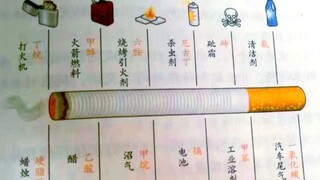 打火机 丁烷
火箭燃料 甲醇
烧烤引火剂 六胺
杀虫剂 尼古丁
砒霜 砷
清洁剂 氨
蜡烛 硬脂
醋 乙酸
沼气 甲烷
电池 镉
工业溶剂 甲苯
汽车尾气 一氧化碳